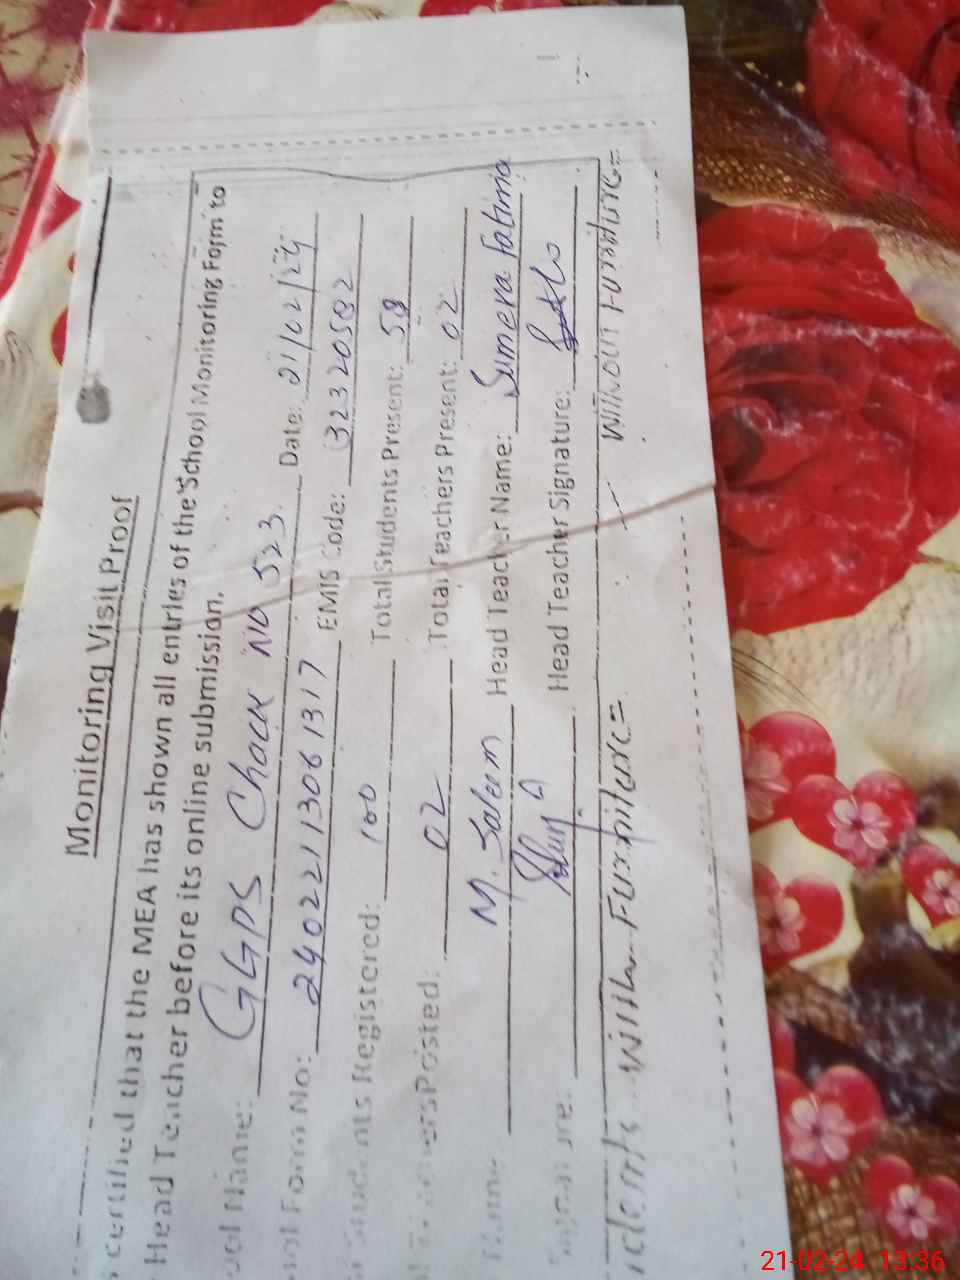 Monitoring Visit Proof
certified that the MEA has shown all entries of the School Monitoring Form to
Head Teacher before its online submission.
Name: GGPS Chack NO 523. Date: 21/02/24
Form No: 24022113061317 EMIS Code: 32320582
Students Registered: 100 Total Students Present: 58
Posted: 02 Total Teachers Present: 02
M. Saleem Head Teacher Name: Sumera fatima
Head Teacher Signature:
With Furniture= Without Furniture=
21-02-24 13:36